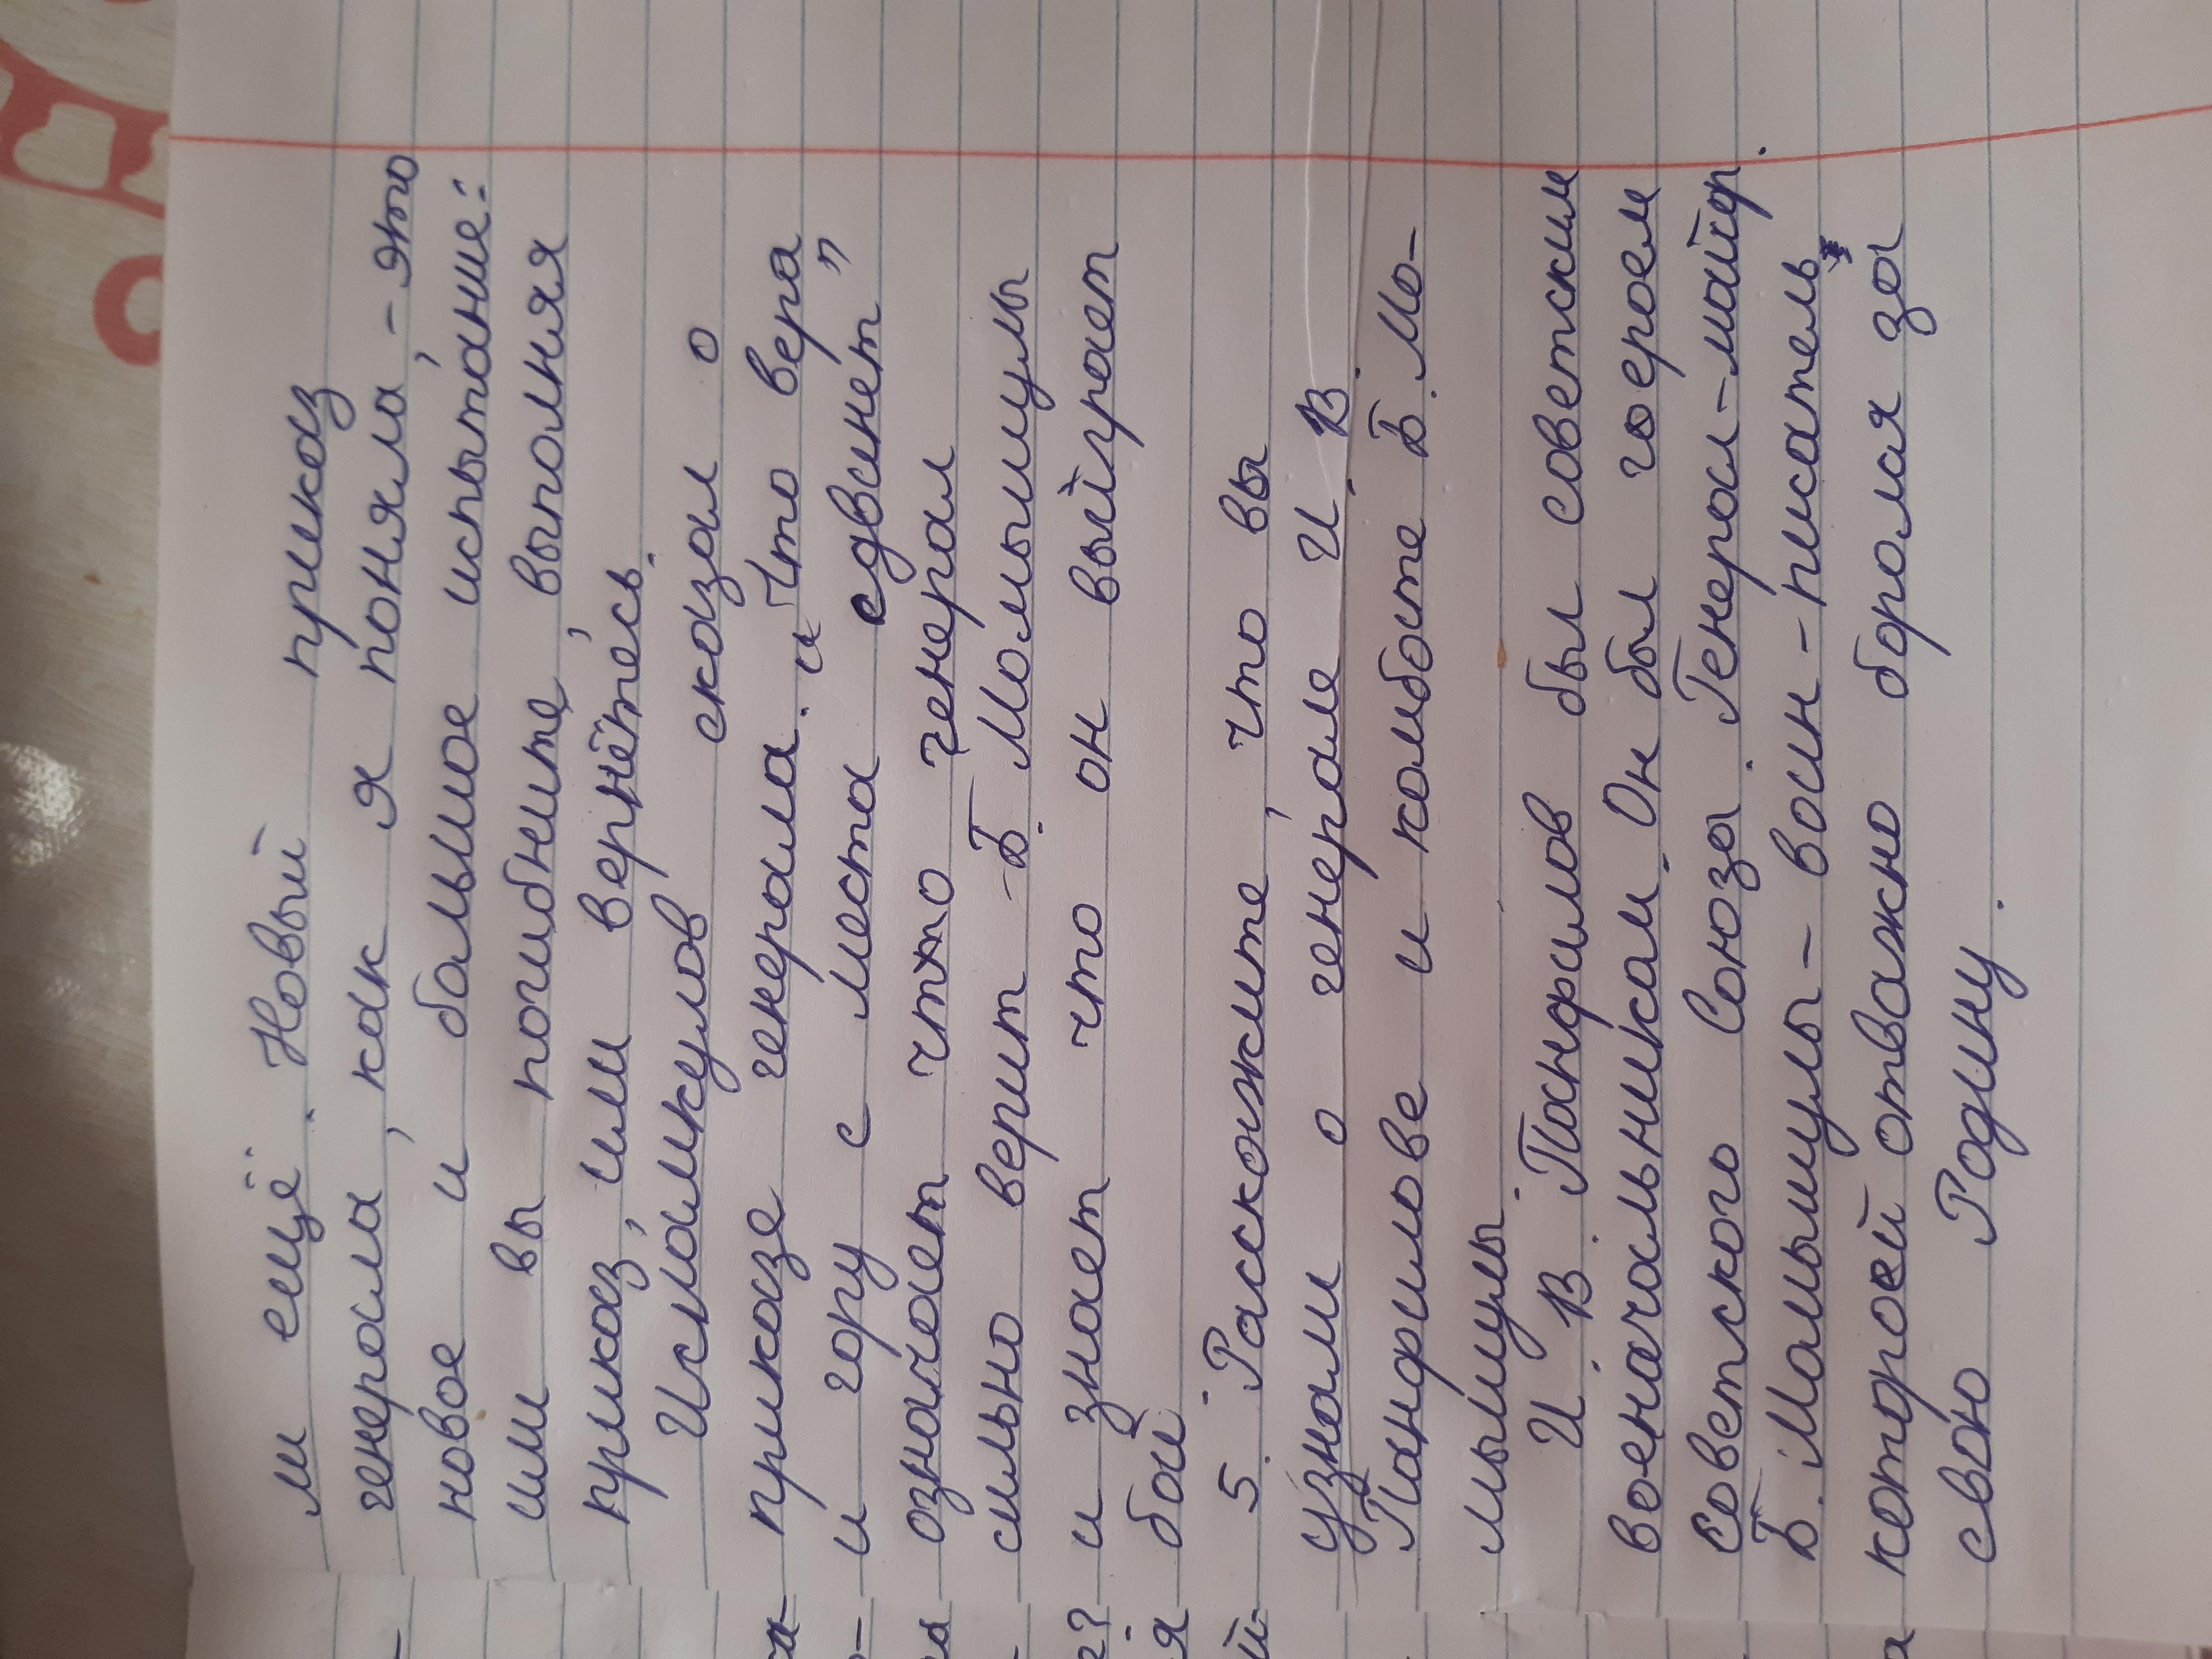 м ещё. Новый приказ
генерала, как я поняла, - это
новое и большое испытание:
или вы погибните, выполняя
приказ, или вернётесь.
Исламкулов сказал о
приказе генерала. "Что вера
и гору с места сдвинет"
означает что генерал
сильно верит Б. Момышулы
и знает что он выйграет
бой
5. Расскажите, что вы
узнали о генерале И. В.
Панфилове и комбате Б. Мо-
мышулы.
И. В. Панфилов был советским
военачальником. Он был героем
Советского Союза. Генерал-майор.
Б. Момышулы - воин-писатель
которой отважно боролся за
свою Родину.